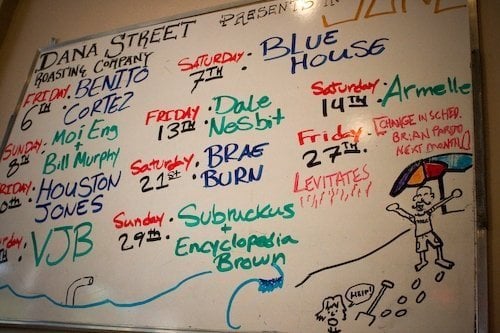 DANA STREET
ROASTING COMPANY
PRESENTS IN JUNE
FRIDAY
6TH · BENITO
CORTEZ
SUNDAY
8TH · Moi Eng
+
Bill Murphy
RIDAY
0TH · HOUSTON
JONES
rday · VJB
SATURDAY
7TH · BLUE
HOUSE
FRIDAY
13TH · Dale
Nesbit
Saturday
21st · BRAE
BURN
Sunday
29TH · Subruckus
+
Encyclopedia
Brown
Saturday
14TH · Armelle
Friday
27TH · [CHANGE IN SCHED.
BRIAN PARDO
NEXT MONTH]
LEVITATES
HELP!